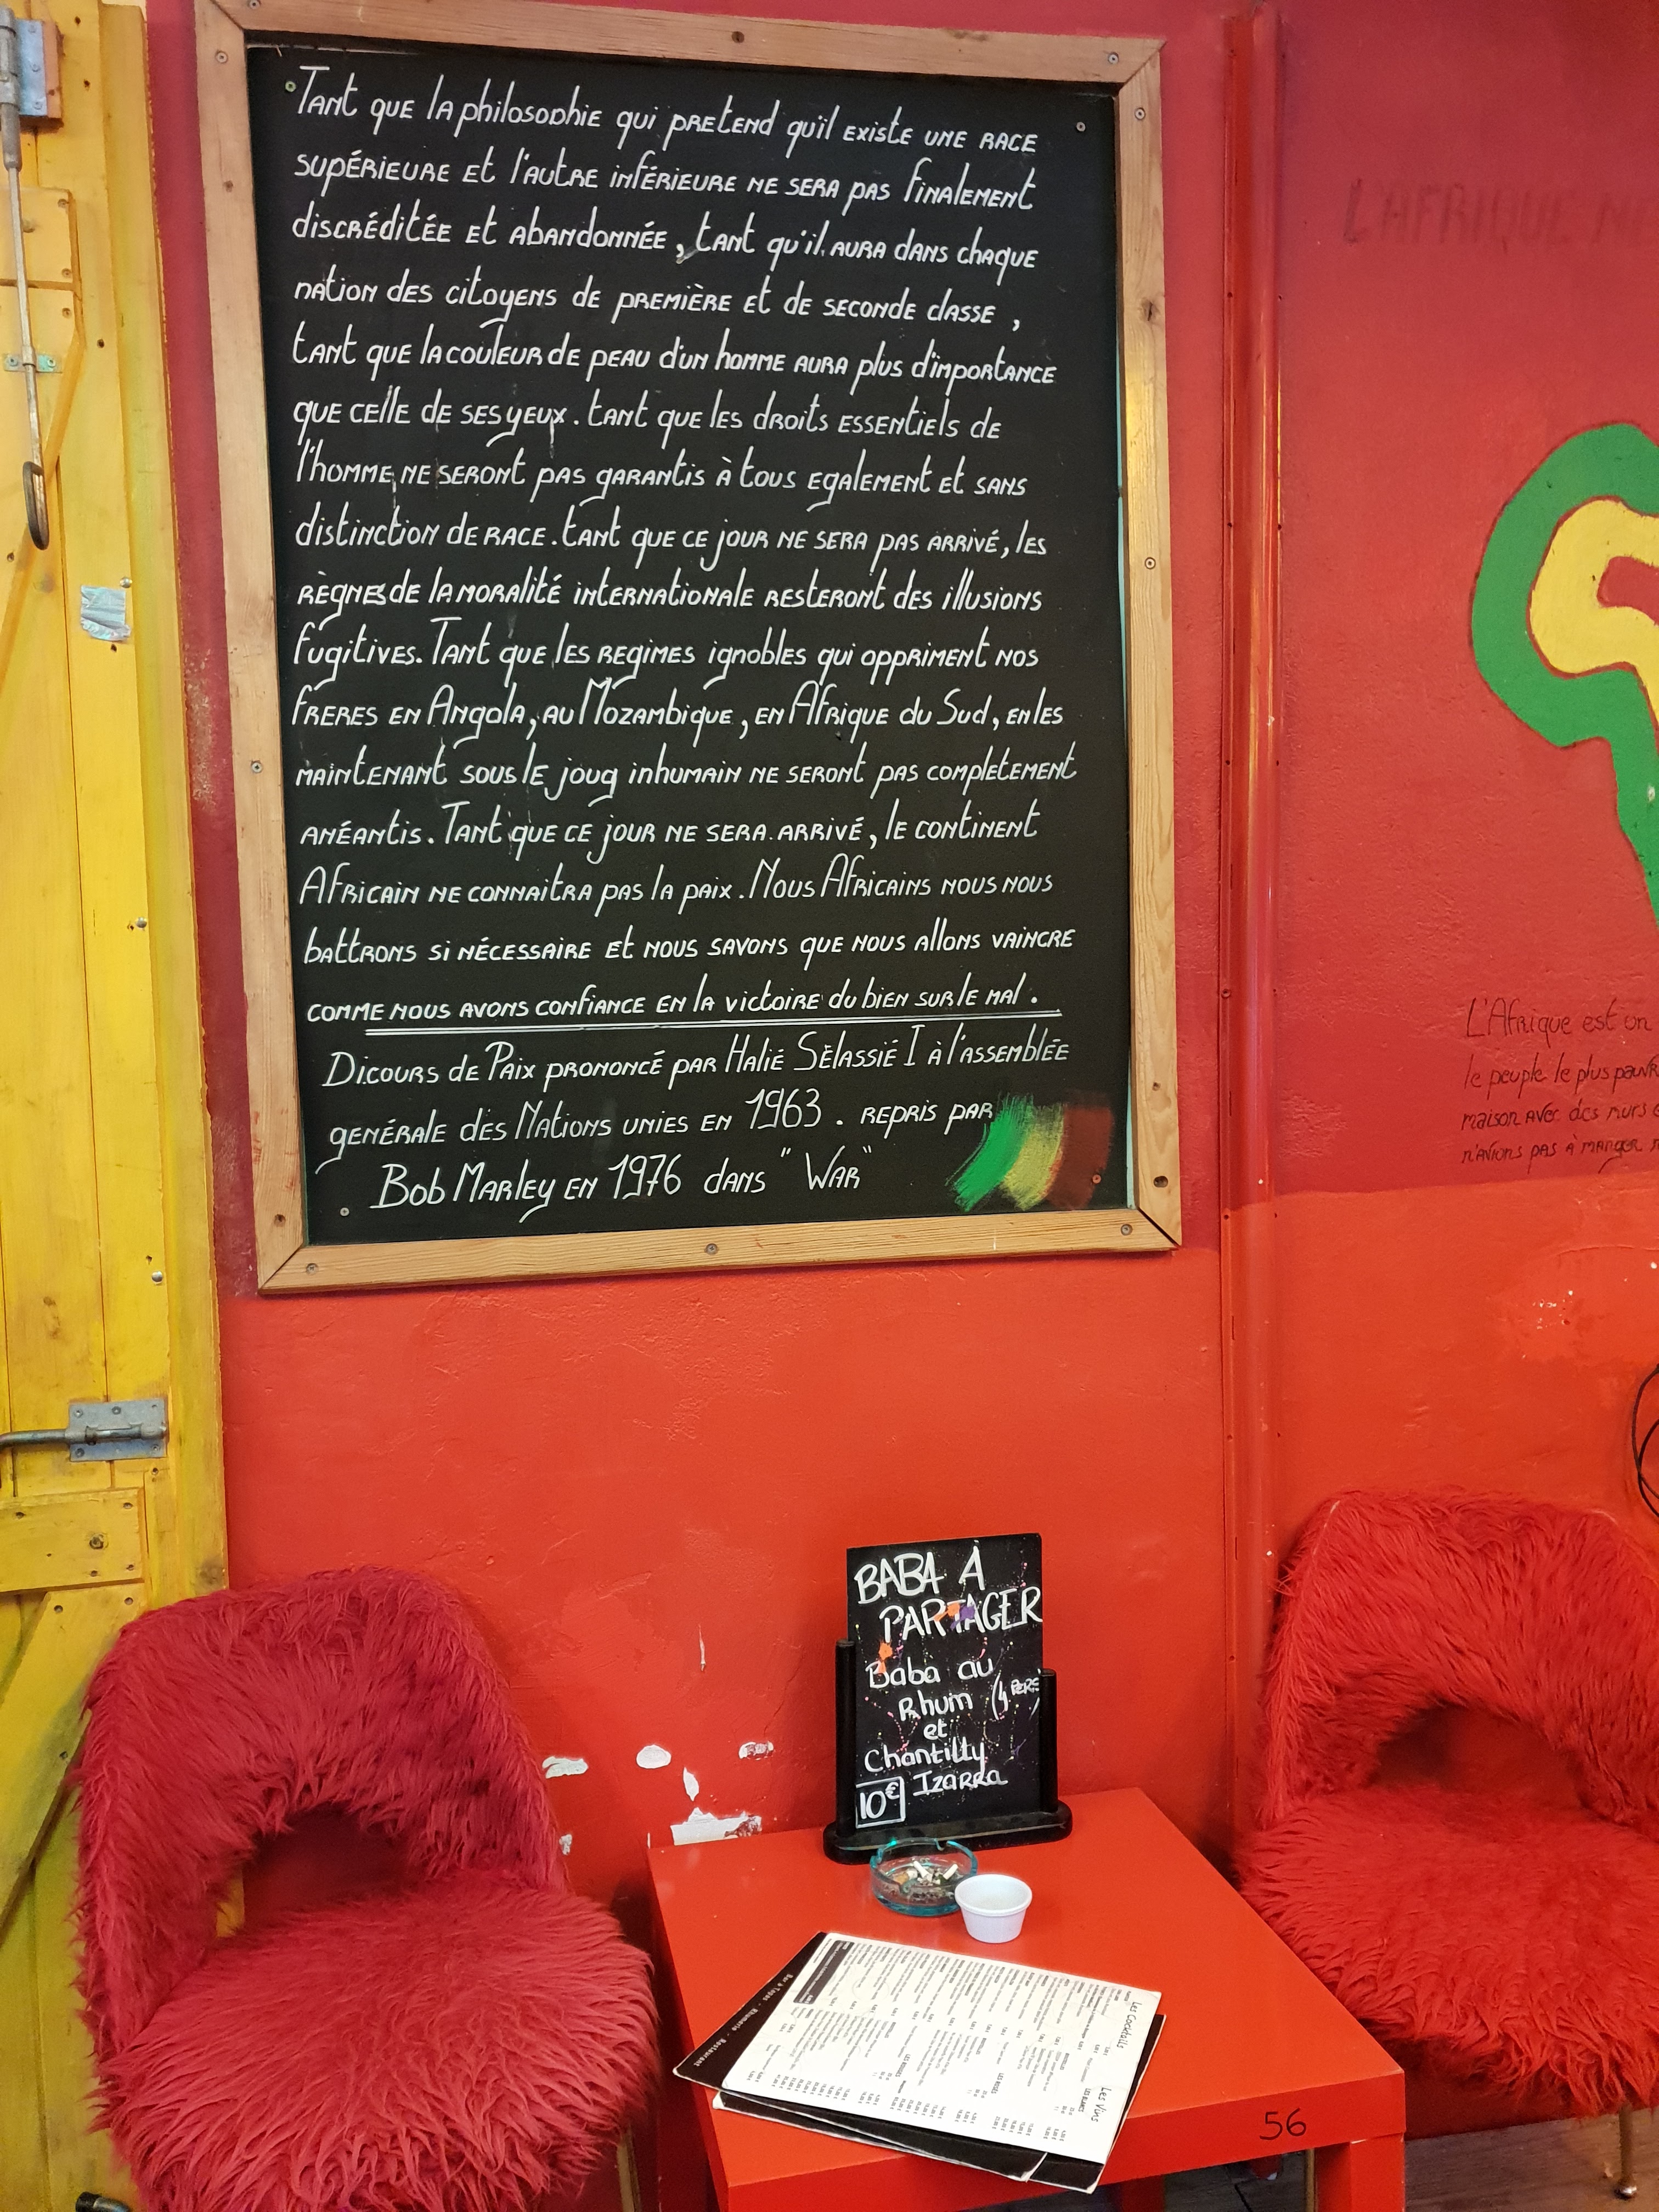 Tant que la philosophie qui pretend qu'il existe une race
supérieure et l'autre inférieure ne sera pas finalement
discréditée et abandonnée, tant qu'il aura dans chaque
nation des citoyens de première et de seconde classe,
tant que la couleur de peau d'un homme aura plus d'importance
que celle de ses yeux. tant que les droits essentiels de
l'homme ne seront pas garantis à tous egalement et sans
distinction de race. tant que ce jour ne sera pas arrivé, les
règnes de la moralité internationale resteront des illusions
fugitives. Tant que les regimes ignobles qui oppriment nos
freres en Angola, au Mozambique, en Afrique du Sud, en les
maintenant sous le joug inhumain ne seront pas completement
anéantis. Tant que ce jour ne sera arrivé, le continent
Africain ne connaitra pas la paix. Nous Africains nous nous
battrons si nécessaire et nous savons que nous allons vaincre
comme nous avons confiance en la victoire du bien sur le mal.
Dicours de Paix prononcé par Halié Sélassié I à l'assemblée
genérale des Nations unies en 1963. repris par
Bob Marley en 1976 dans "War"
L'AFRIQUE
L'Afrique est un
le peuple le plus pauvr
maison avec des murs
n'avions pas à manger
BABA À
PARTAGER
Baba au
Rhum (4 PERS)
et
Chantilly
Izarra
10€
Bar à Tapas - Rhumerie - Restaurant
Les Cocktails
Les Vins
56